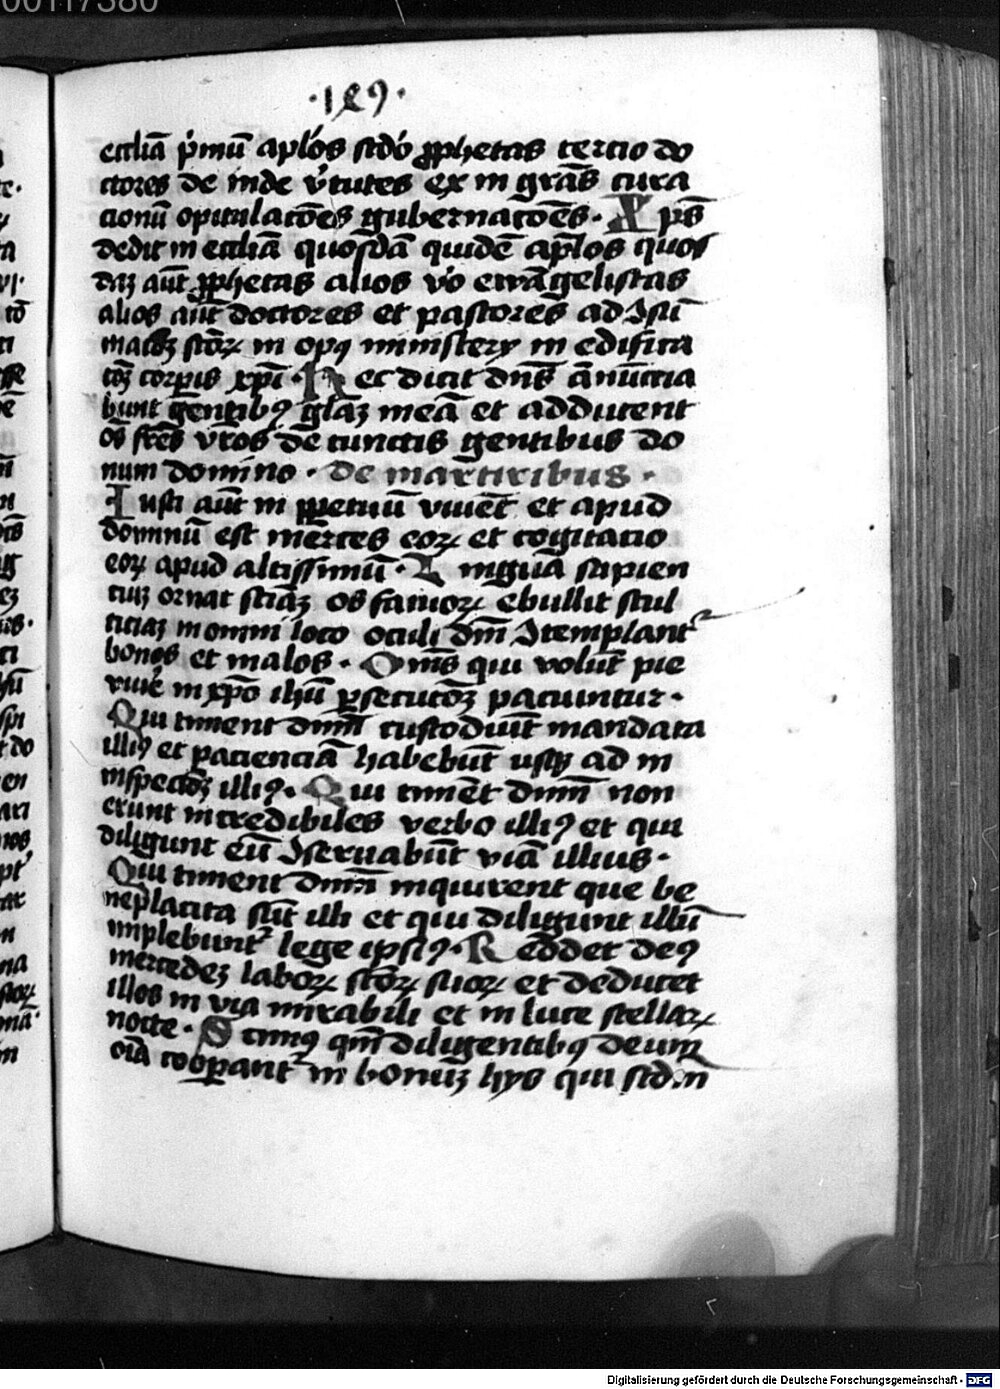 00117380
·189·
eccliā p̓mū apl̓os scd̓o ꝓphetas tercio do
ctores de inde v̓tutes ex in gr̄as cura
cionū opitulac̄oes gubernac̄oes · Xp̄s
dedit in eccliā quosdā quidē ap̄los quos
daʒ aūt ꝓphetas alios v̓o ewāgelistas
alios aūt doctores et pastores ad ɔsū
mac̄oʒ sc̄oꝝ in opꝯ ministery in edifica
c̄oʒ corp̄is xp̄i · Hec dicit dn̄s ānūccia
bunt gentibꝯ gl̄aʒ meā et adducent
oēs fr̄es vr̄os de cunctis gentibus do
num domino · de martiribus ·
Iusti aūt in ꝑpetuū viuēt et apud
dominū est merces eoꝝ et cogitacio
eoꝝ apud altissimū · Lingua sapien
ciū ornat sciāʒ os fatuoꝝ ebullit stul
ticiaʒ in omni loco oculi dn̄i ɔtemplant᷑
bonos et malos · Om̄s qui volūt pie
viu̓e in xp̄o ihū ꝑsecuc̄oʒ paciuntur ·
Qui timent dn̄m custodiūt mandata
illiꝯ et pacienciā habebūt usqʒ ad in
inspecc̄oʒ illiꝯ · Qui timēt dn̄m non
erunt incredibiles verbo illiꝯ et qui
diligunt eū ɔseruabūt viā illius ·
Qui timent dn̄m inquirent que be
neplacita sūt illi et qui diligunt illū
implebunt᷑ lege ipsiꝯ · Reddet deꝯ
mercedeʒ laboꝝ sc̄oꝝ suoꝝ et deducet
illos in via mirabili et in luce stellaꝝ
nocte · Scimꝯ qm̄ diligentibꝯ deum
oīa coop̄ant᷑ in bonūʒ hys qui scdm
Digitalisierung gefördert durch die Deutsche Forschungsgemeinschaft - DFG